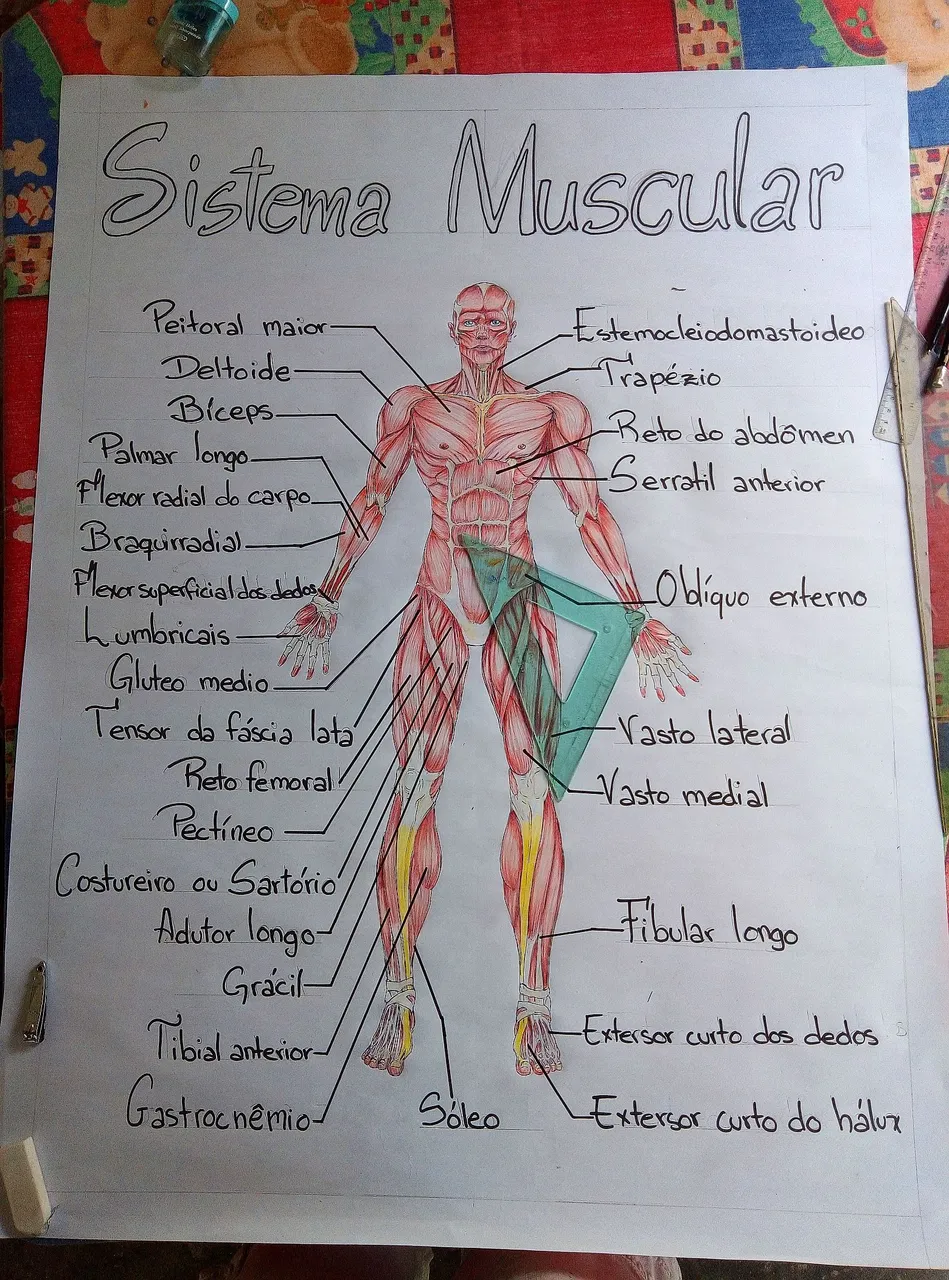 Sistema Muscular
Peitoral maior
Deltoide
Bíceps
Palmar longo
Flexor radial do carpo
Braquirradial
Flexor superficial dos dedos
Lumbricais
Gluteo medio
Tensor da fáscia lata
Reto femoral
Pectíneo
Costureiro ou Sartório
Adutor longo
Grácil
Tibial anterior
Gastrocnêmio
Sóleo
Estemocleiodomastoideo
Trapézio
Reto do abdômen
Serratil anterior
Oblíquo externo
Vasto lateral
Vasto medial
Fibular longo
Extersor curto dos dedos
Extersor curto do hálux